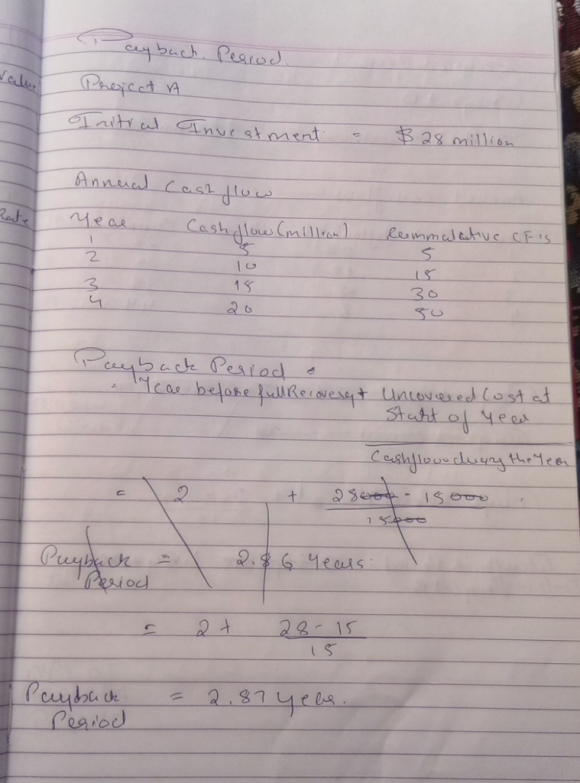 Payback Period
Value
Project A
Initial Investment = $28 million
Annual Cash flow
Rate
Year Cash flow (million) Cummulative CF's
1 5 5
2 10 15
3 15 30
4 20 50
Payback Period =
= Year before full Recovery + Uncovered Cost at
Start of Year
Cashflow during the Year
= 2 + 28000 - 15000
15000
Payback = 2.86 Years
Period
= 2 + 28 - 15
15
Payback = 2.87 year.
Period